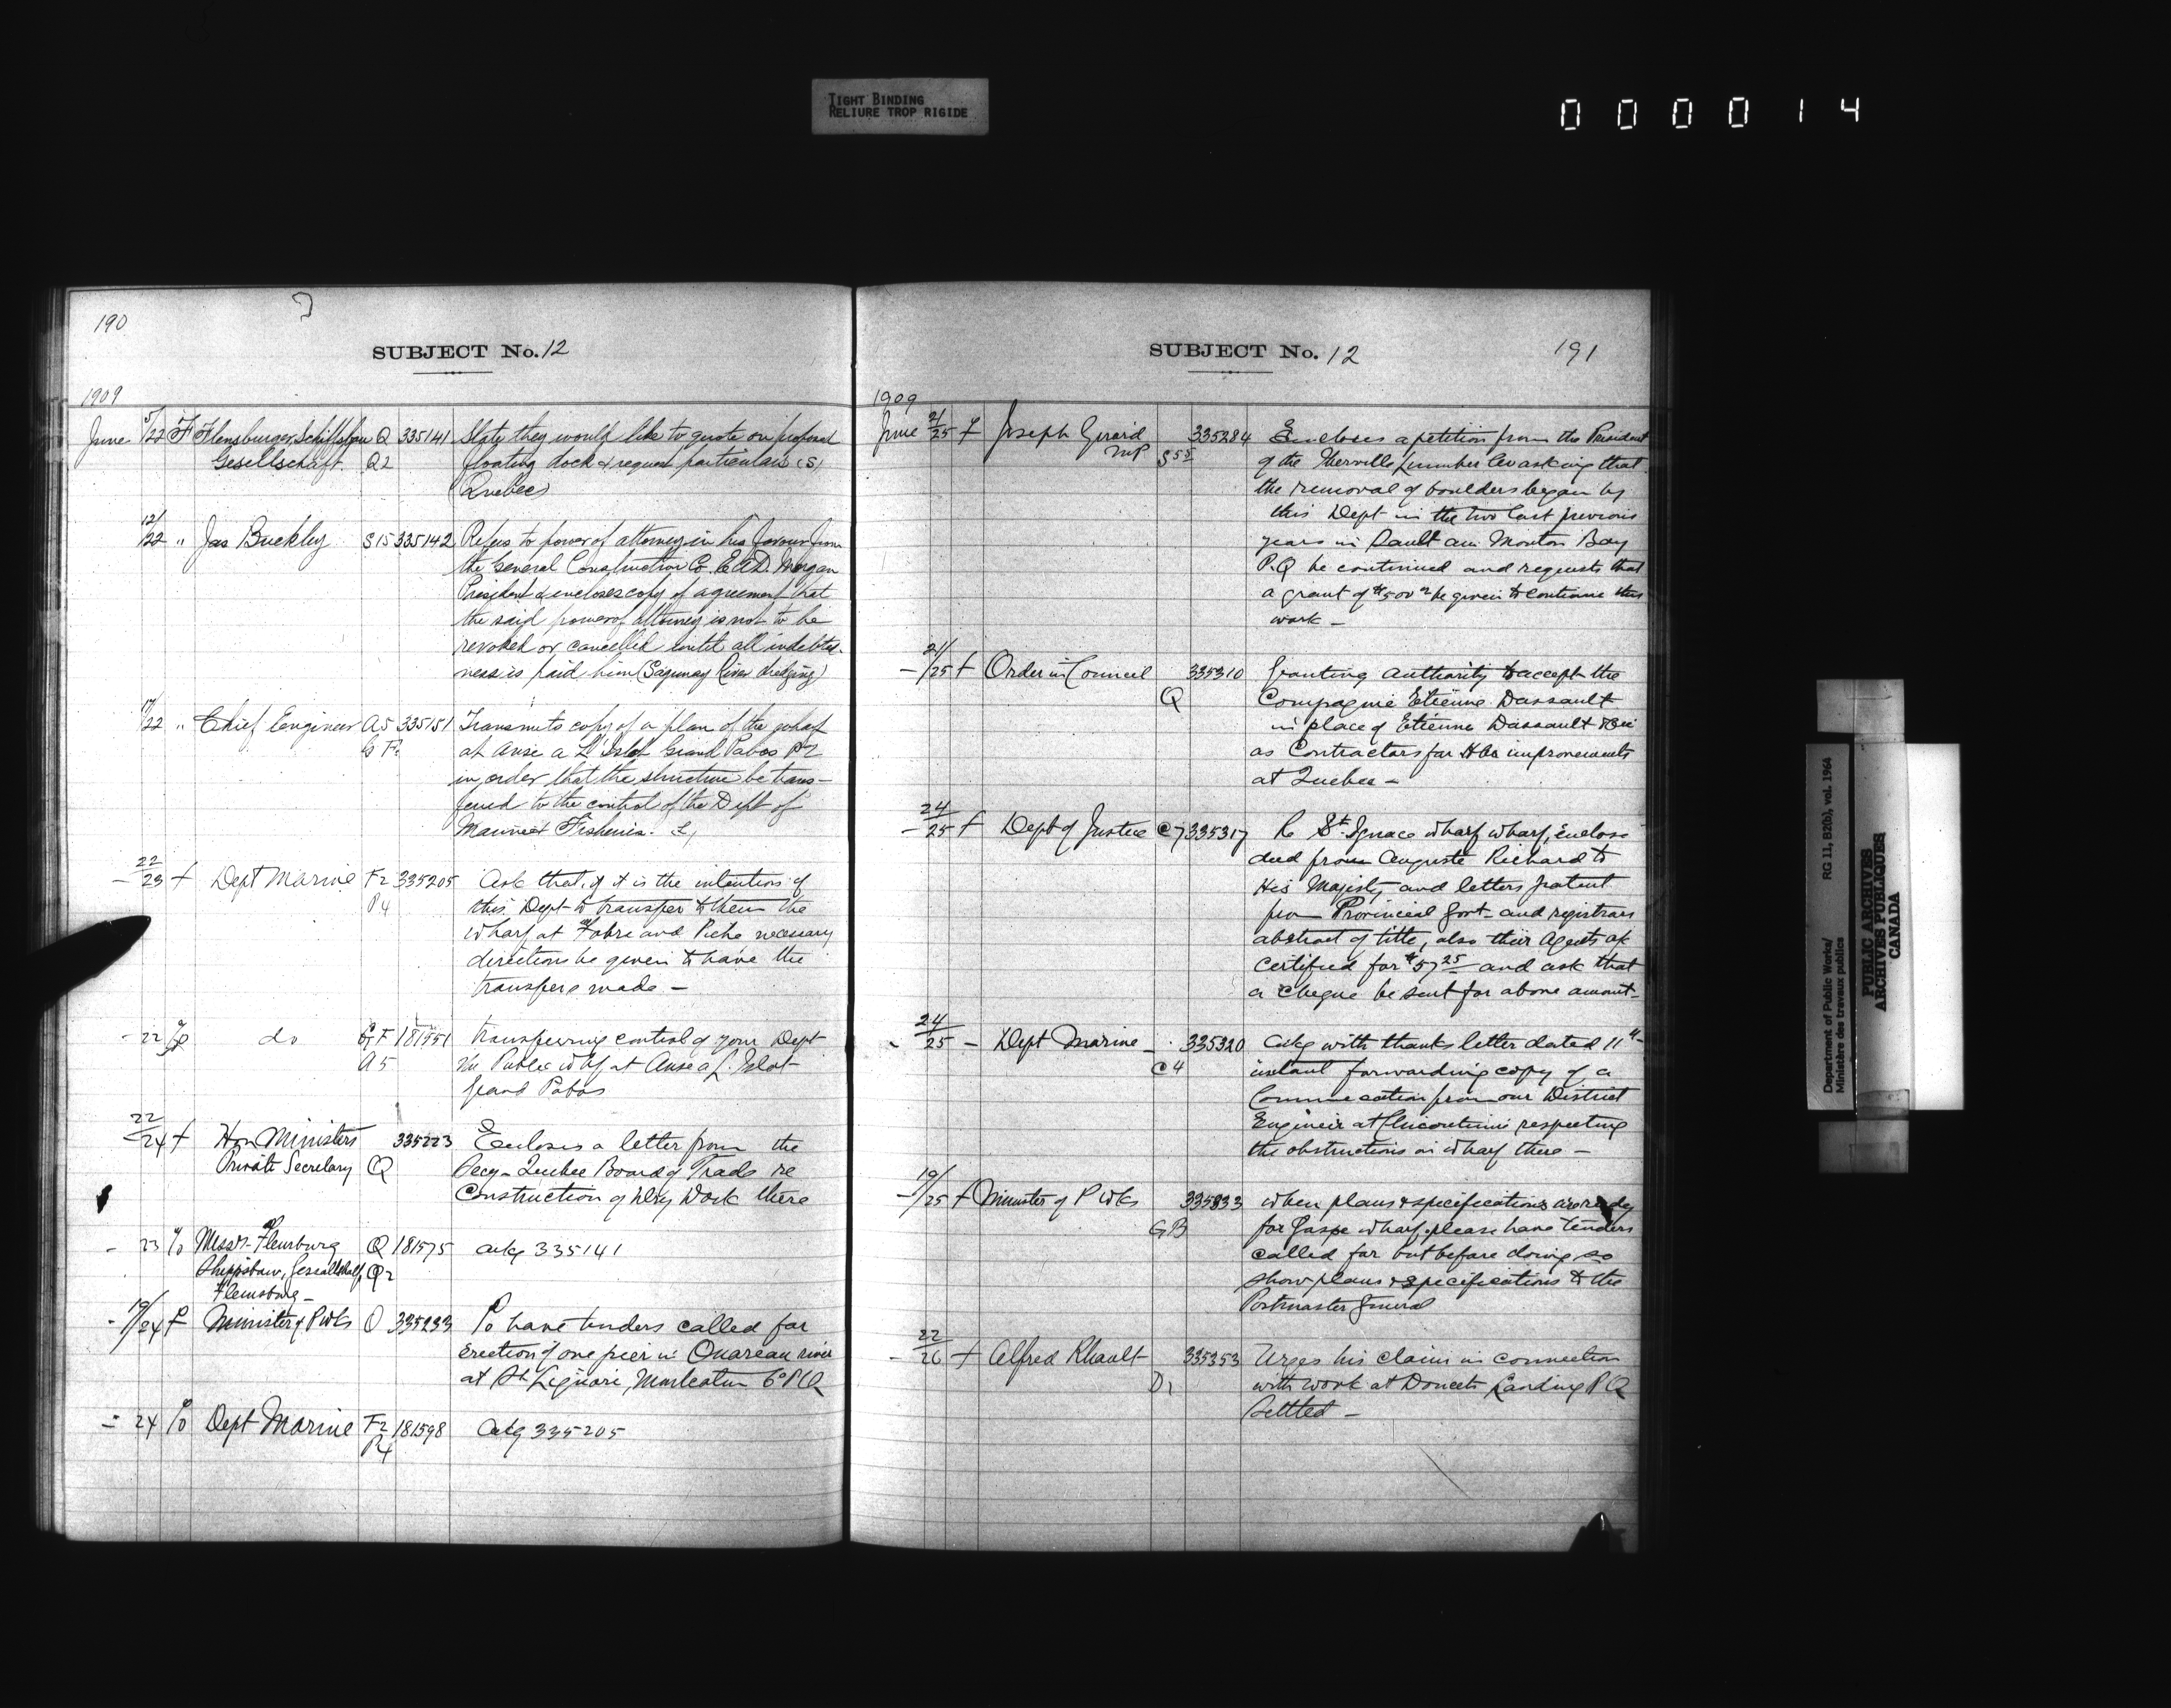 TIGHT BINDING
RELIURE TROP RIGIDE
0 0 0 0 1 4
190
SUBJECT No. 12
1909
June 5/22 F Flensburger Schiffsbau Q 335141 State they would like to quote on proposed
Gesellschaft Q2 floating dock & request particulars (S)
(Quebec)
12/22 " Jas Buckley S15 335142 Refers to power of attorney in his favour from
the General Construction Co. E A D. Morgan
President & encloses copy of agreement that
the said power of attorney is not to be
revoked or cancelled until all indebted-
ness is paid him (Saguenay River dredging)
17/22 " Chief Engineer A5 335151 Transmits copy of a plan of the wharf
at Anse a L'Islot Grand Pabos PQ
in order that the structure be trans-
ferred to the control of the Dept of
Marine & Fisheries.
- 22/23 f Dept Marine F2 335205 Ask that if it is the intention of
P4 this Dept to transfer to them the
wharf at Fabre and Piche necessary
directions be given to have the
transfers made -
- 22 do G F 181551 transferring control of your Dept
A5 the Public Whf at Anse a L'Islot
Grand Pabos
22/24 f Hon Ministers 335223 Encloses a letter from the
Private Secretary Q Secy- Quebec Board of Trade re
Construction of Dry Dock there
- 23 % Messrs Flensburg Q 181575 ackg 335141
Shippsbaw, Gesellschaft, Q2
Flensburg -
- 19/24 f Minister of P Wks O 335233 To have tenders called for
Erection of one pier in Ouareau river
at St Liguori, Montcalm Co P.Q
- 24 % Dept Marine F2 181598 Ackg 335205
P4
SUBJECT No. 12 191
1909
June 21/25 f Joseph Girard 335284 Encloses a petition from the President
MP S55 of the Iberville Lumber Co asking that
the removal of boulders began by
this Dept in the two last previous
years in Sault au Mouton Bay
P.Q be continued and requests that
a grant of $500 be given to continue this
work -
- 21/25 f Order in Council 335310 Granting authority to accept the
Q Compagnie Etienne Dussault
in place of Etienne Dussault & Cie
as Contractors for Hbr improvements
at Quebec -
- 24/25 f Dept of Justice C7 335317 Re St. Ignace wharf wharf, enclose
deed from Auguste Richard to
His Majesty and letters patent
from Provincial Govt- and registrars
abstract of title, also their Agents a/c
certified for $57 25 and ask that
a cheque be sent for above amount-
- 24/25 - Dept Marine - 335320 Ackg with thanks letter dated 11th
C4 instant forwarding copy of a
Communication from our District
Engineer at Chicoutimi respecting
the obstructions on wharf there -
- 19/25 f Minister of P Wks 335333 when plans & specifications are ready
GB for Gaspe wharf, please have tenders
called for but before doing so
show plans & specifications to the
Postmaster General
- 22/26 f Alfred Rheault 335353 Urges his claim in connection
D1 with work at Doucets Landing P Q
Settled -
Department of Public Works/ RG 11, B2(b), vol. 1964
Ministère des travaux publics
PUBLIC ARCHIVES
ARCHIVES PUBLIQUES
CANADA